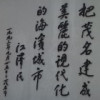 把茂名建成
美丽的现代化
的海滨城市
江泽民